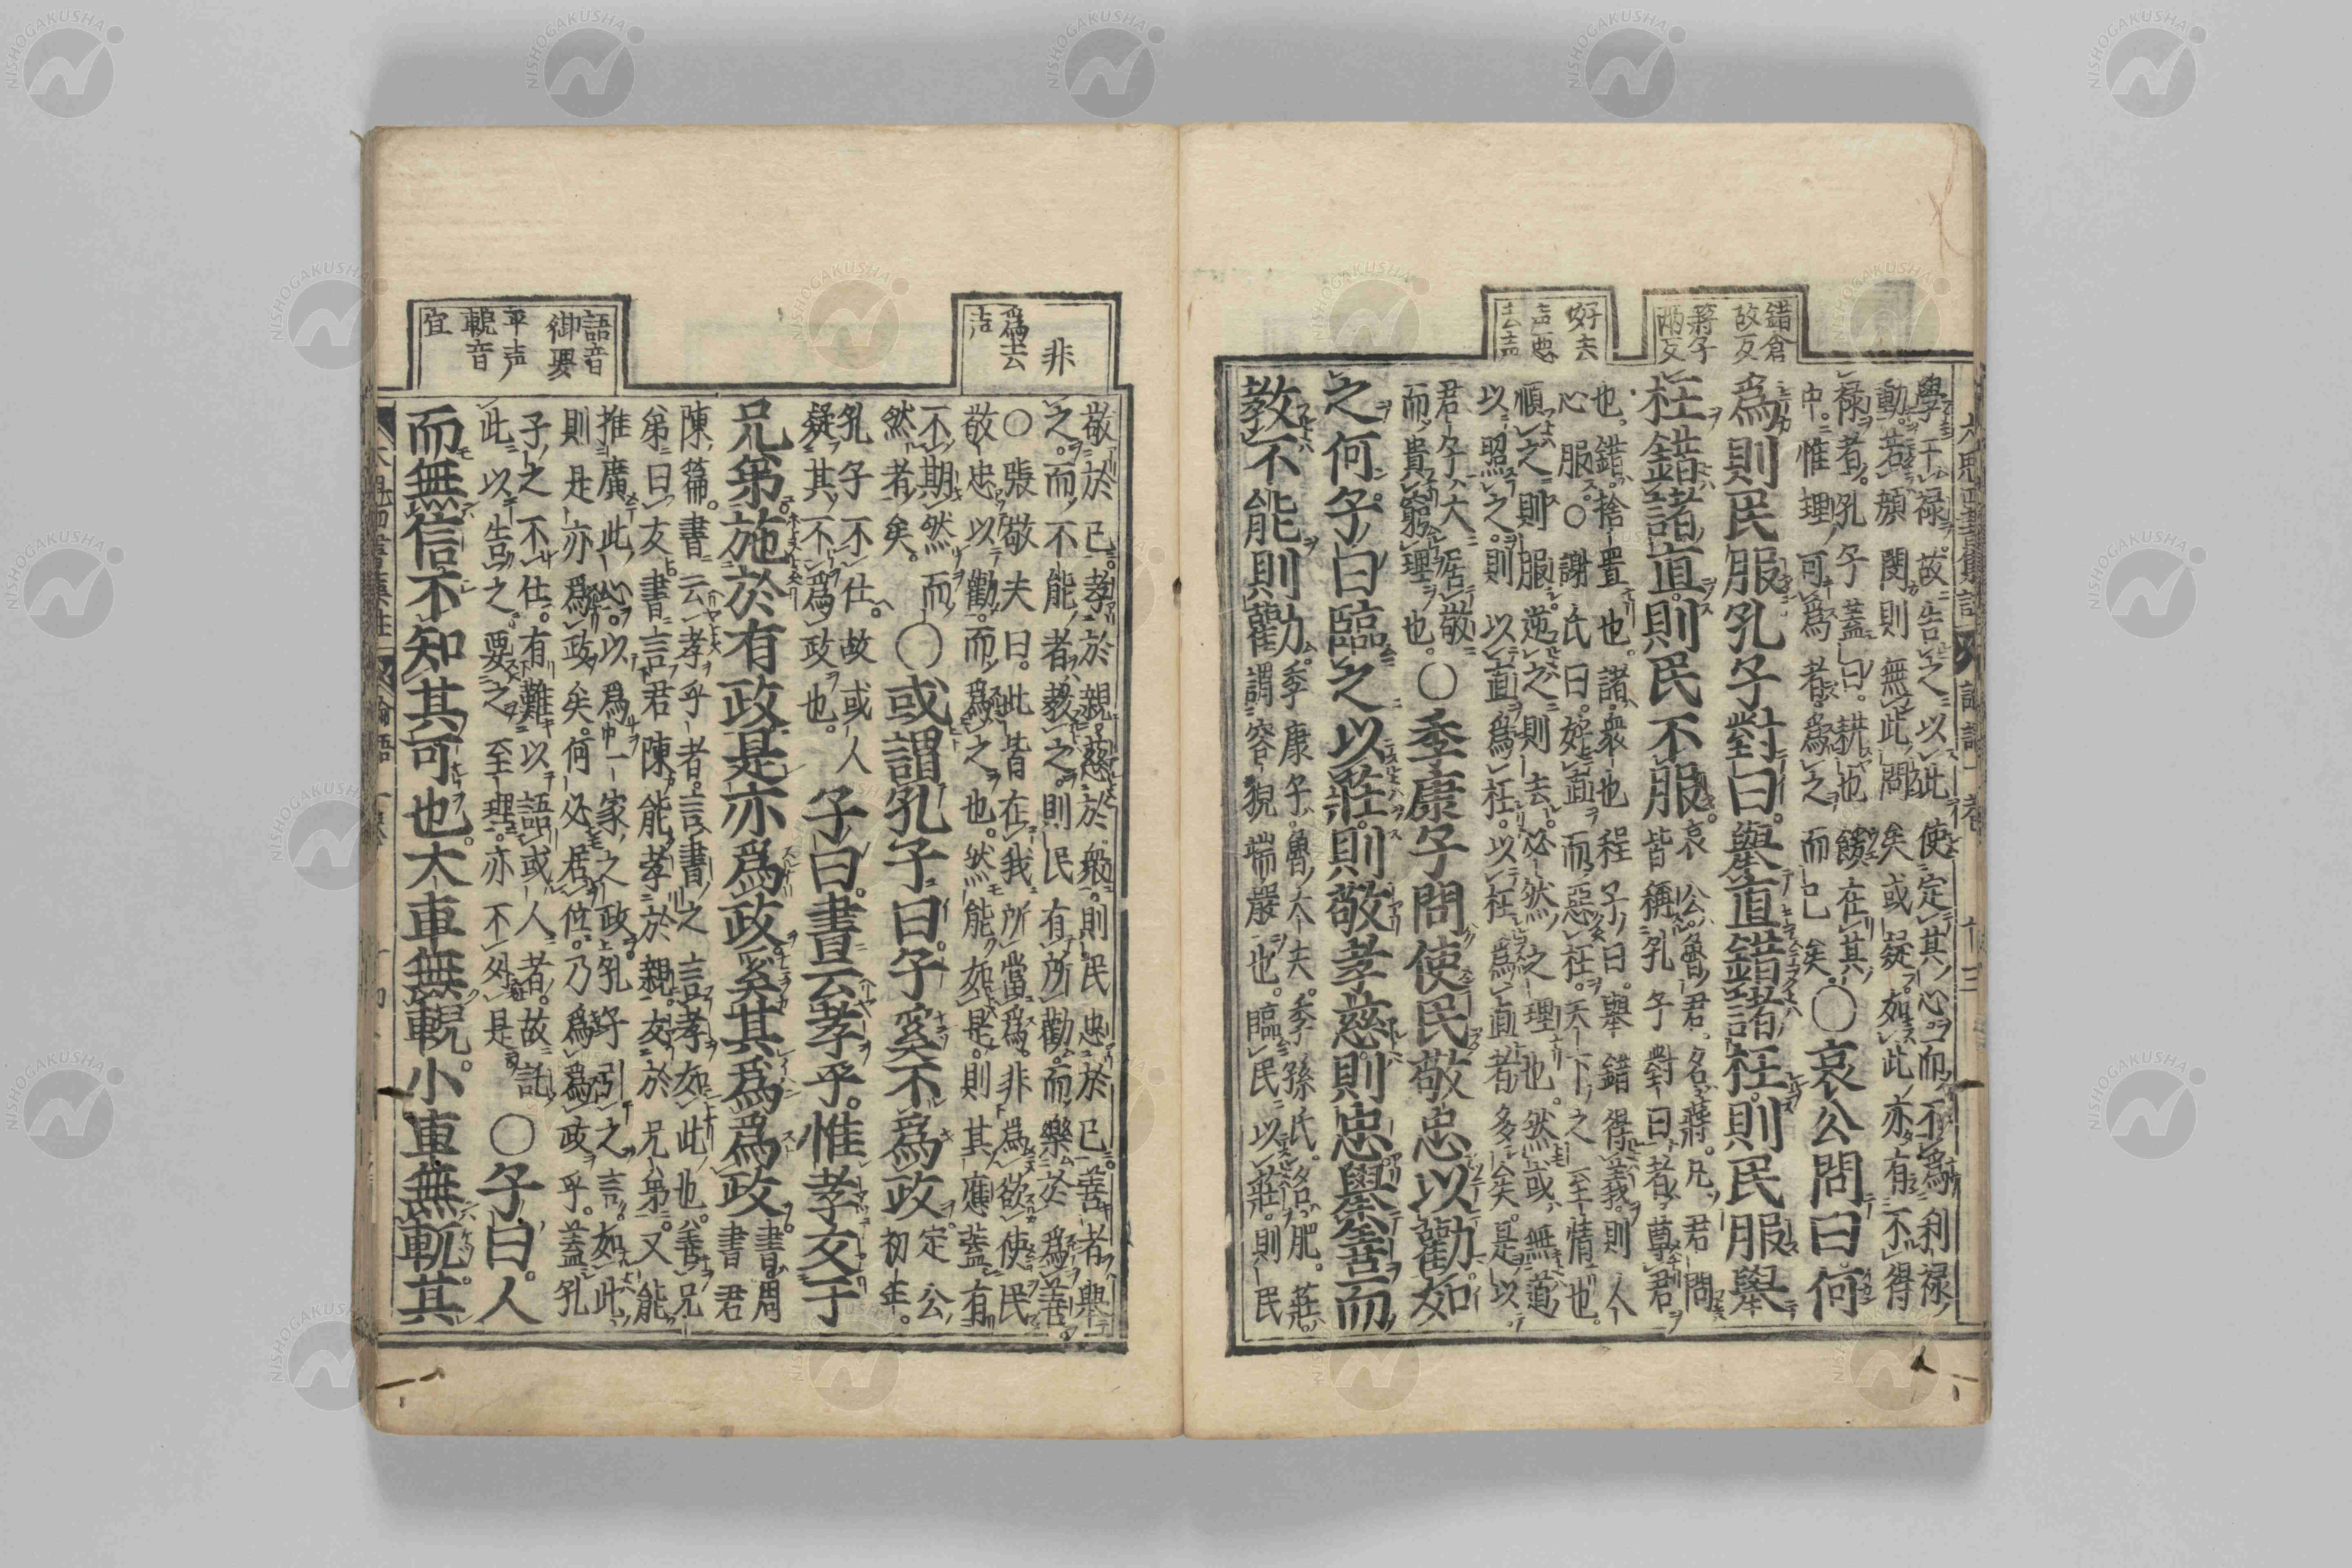 錯倉
故反
蔣子
兩反
好去
声惡
去声
學干禄。故告之以此使定其心。而不爲利禄
動。若顔閔則無此問矣或疑。如此亦有不得
禄者。孔子蓋曰。耕也餒在其
中。惟理可爲者。爲之而已矣。
〇哀公問曰。何
爲則民服孔子對曰。舉直錯諸枉。則民服舉
枉錯諸直。則民不服。
哀公。魯君。名蔣。凡君問
皆稱孔子對曰者。尊君
也。錯。捨置也。諸。衆也程子曰。舉錯得義。則人
心服。〇謝氏曰。好直而惡枉。天下之至情也。
順之則服。逆之則去。必然之理也。然或無道
以照之。則以直爲枉。以枉爲直者多矣。是以
君子大居敬
而貴窮理也。
〇季康子問使民敬忠以勸。如
之何。子曰臨之以莊。則敬孝慈則忠。舉善而
教不能則勸
季康子。魯大夫。季孫氏。名肥。莊。
謂容貌端嚴也。臨民以莊。則民
非
爲去
声
語音
御要
平声
輗音
宜
敬於己。孝於親。慈於衆。則民忠於己。善者舉
之。而不能者教之。則民有所勸。而樂於爲善。
〇張敬夫曰。此皆在我所當爲。非爲欲使民
敬忠以勸。而爲之也。然能如是。則其應蓋有
不期然而
然者矣。
〇或謂孔子曰。子奚不爲政。
定公
初年。
孔子不仕。故或人
疑其不爲政也。
子曰。書云孝乎。惟孝友于
兄弟。施於有政。是亦爲政。奚其爲爲政。
書。周
書君
陳篇。書云孝乎者。言書之言孝如此也。善兄
弟曰友書言君陳能孝於親。友於兄弟。又能
推廣此心。以爲一家之政。孔子引之言。如此
則是亦爲政矣。何必居位。乃爲爲政乎。蓋孔
子之不仕。有難以語或人者。故託
此以告之要之至理。亦不外是
〇子曰。人
而無信。不知其可也。大車無輗。小車無軏。其